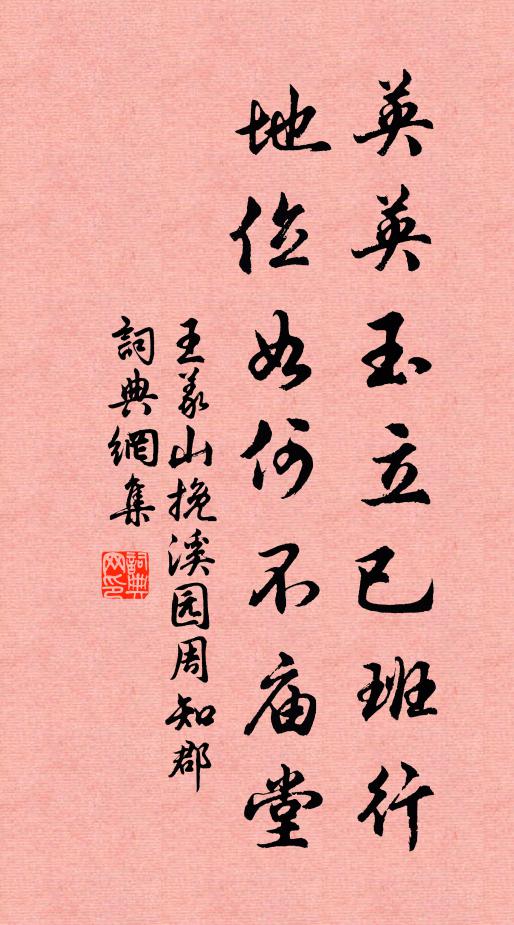 英英玉立已班行
地位如何不庙堂
王义山挽溪园周知郡
詞典網集
詞典网印